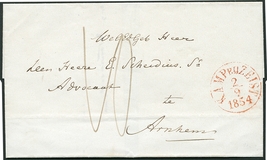 WelEdGeb Heer
den Heere E. Scheidius, Sn
Advocaat
te
Arnhem
KAMP BY ZEIST
2
9
1854